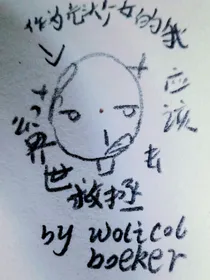 作为元火少女的我
应该去
拯救世界
by wolicol
boeker